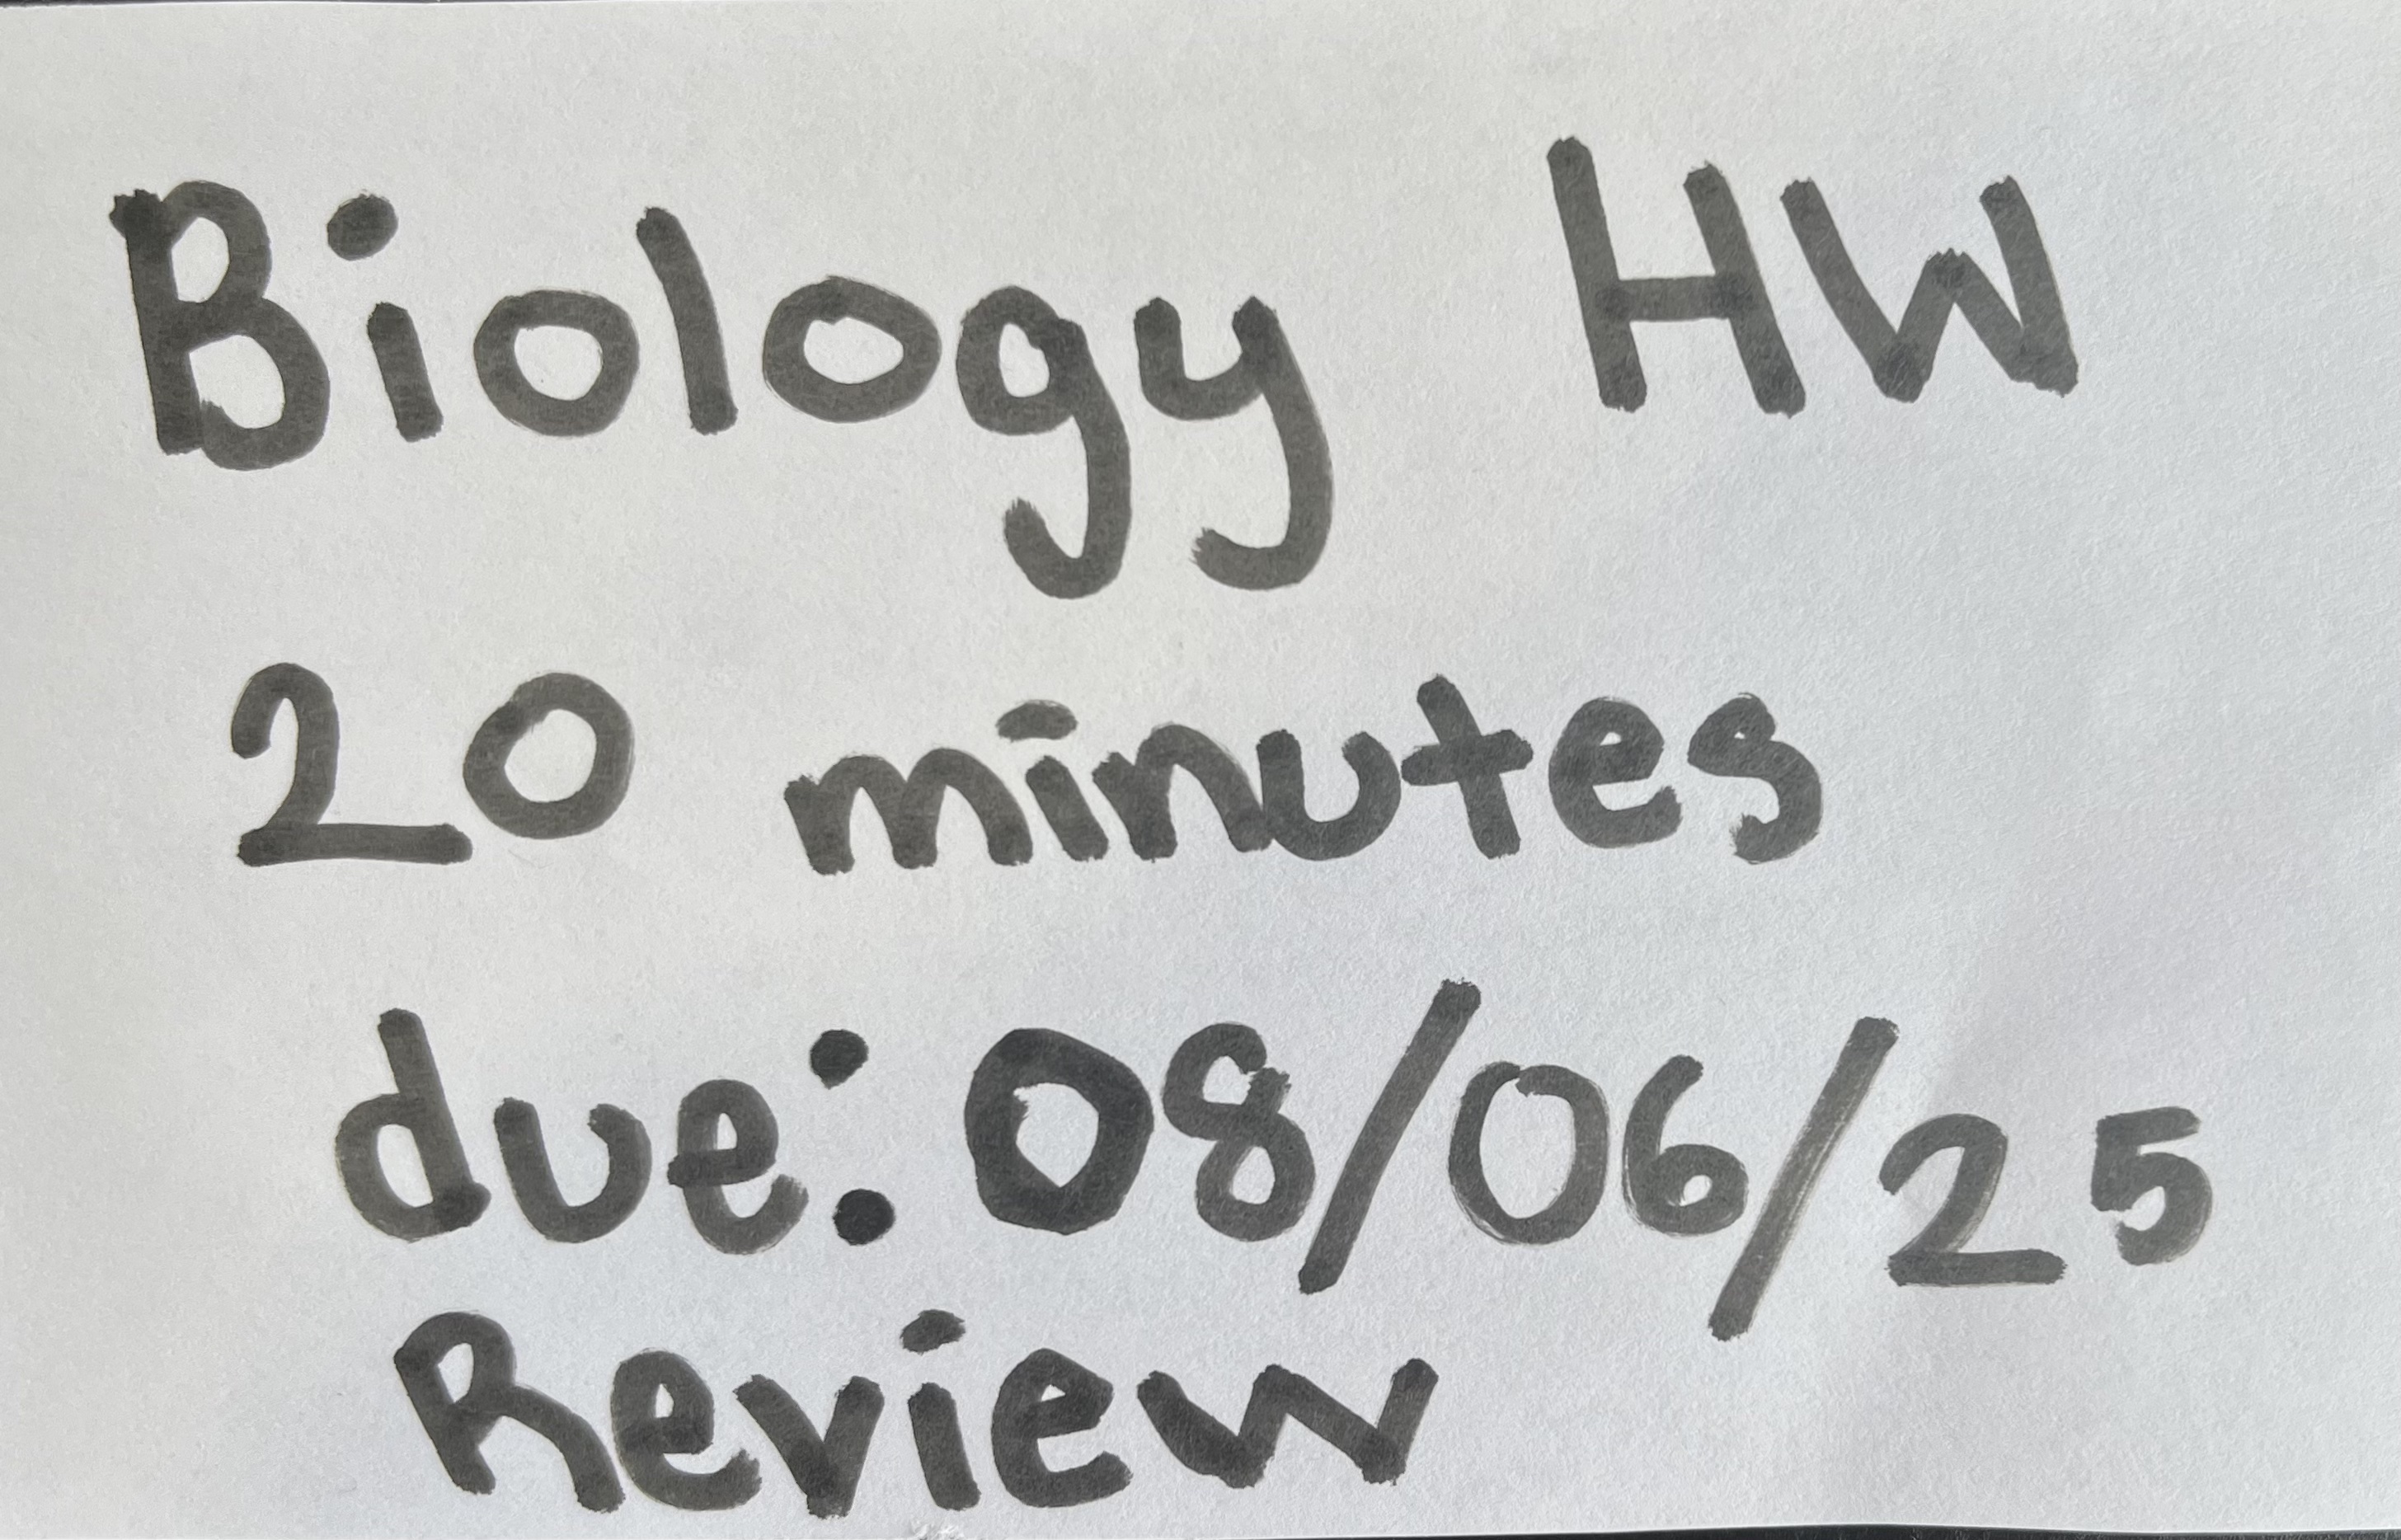 Biology HW
20 minutes
due: 08/06/25
Review